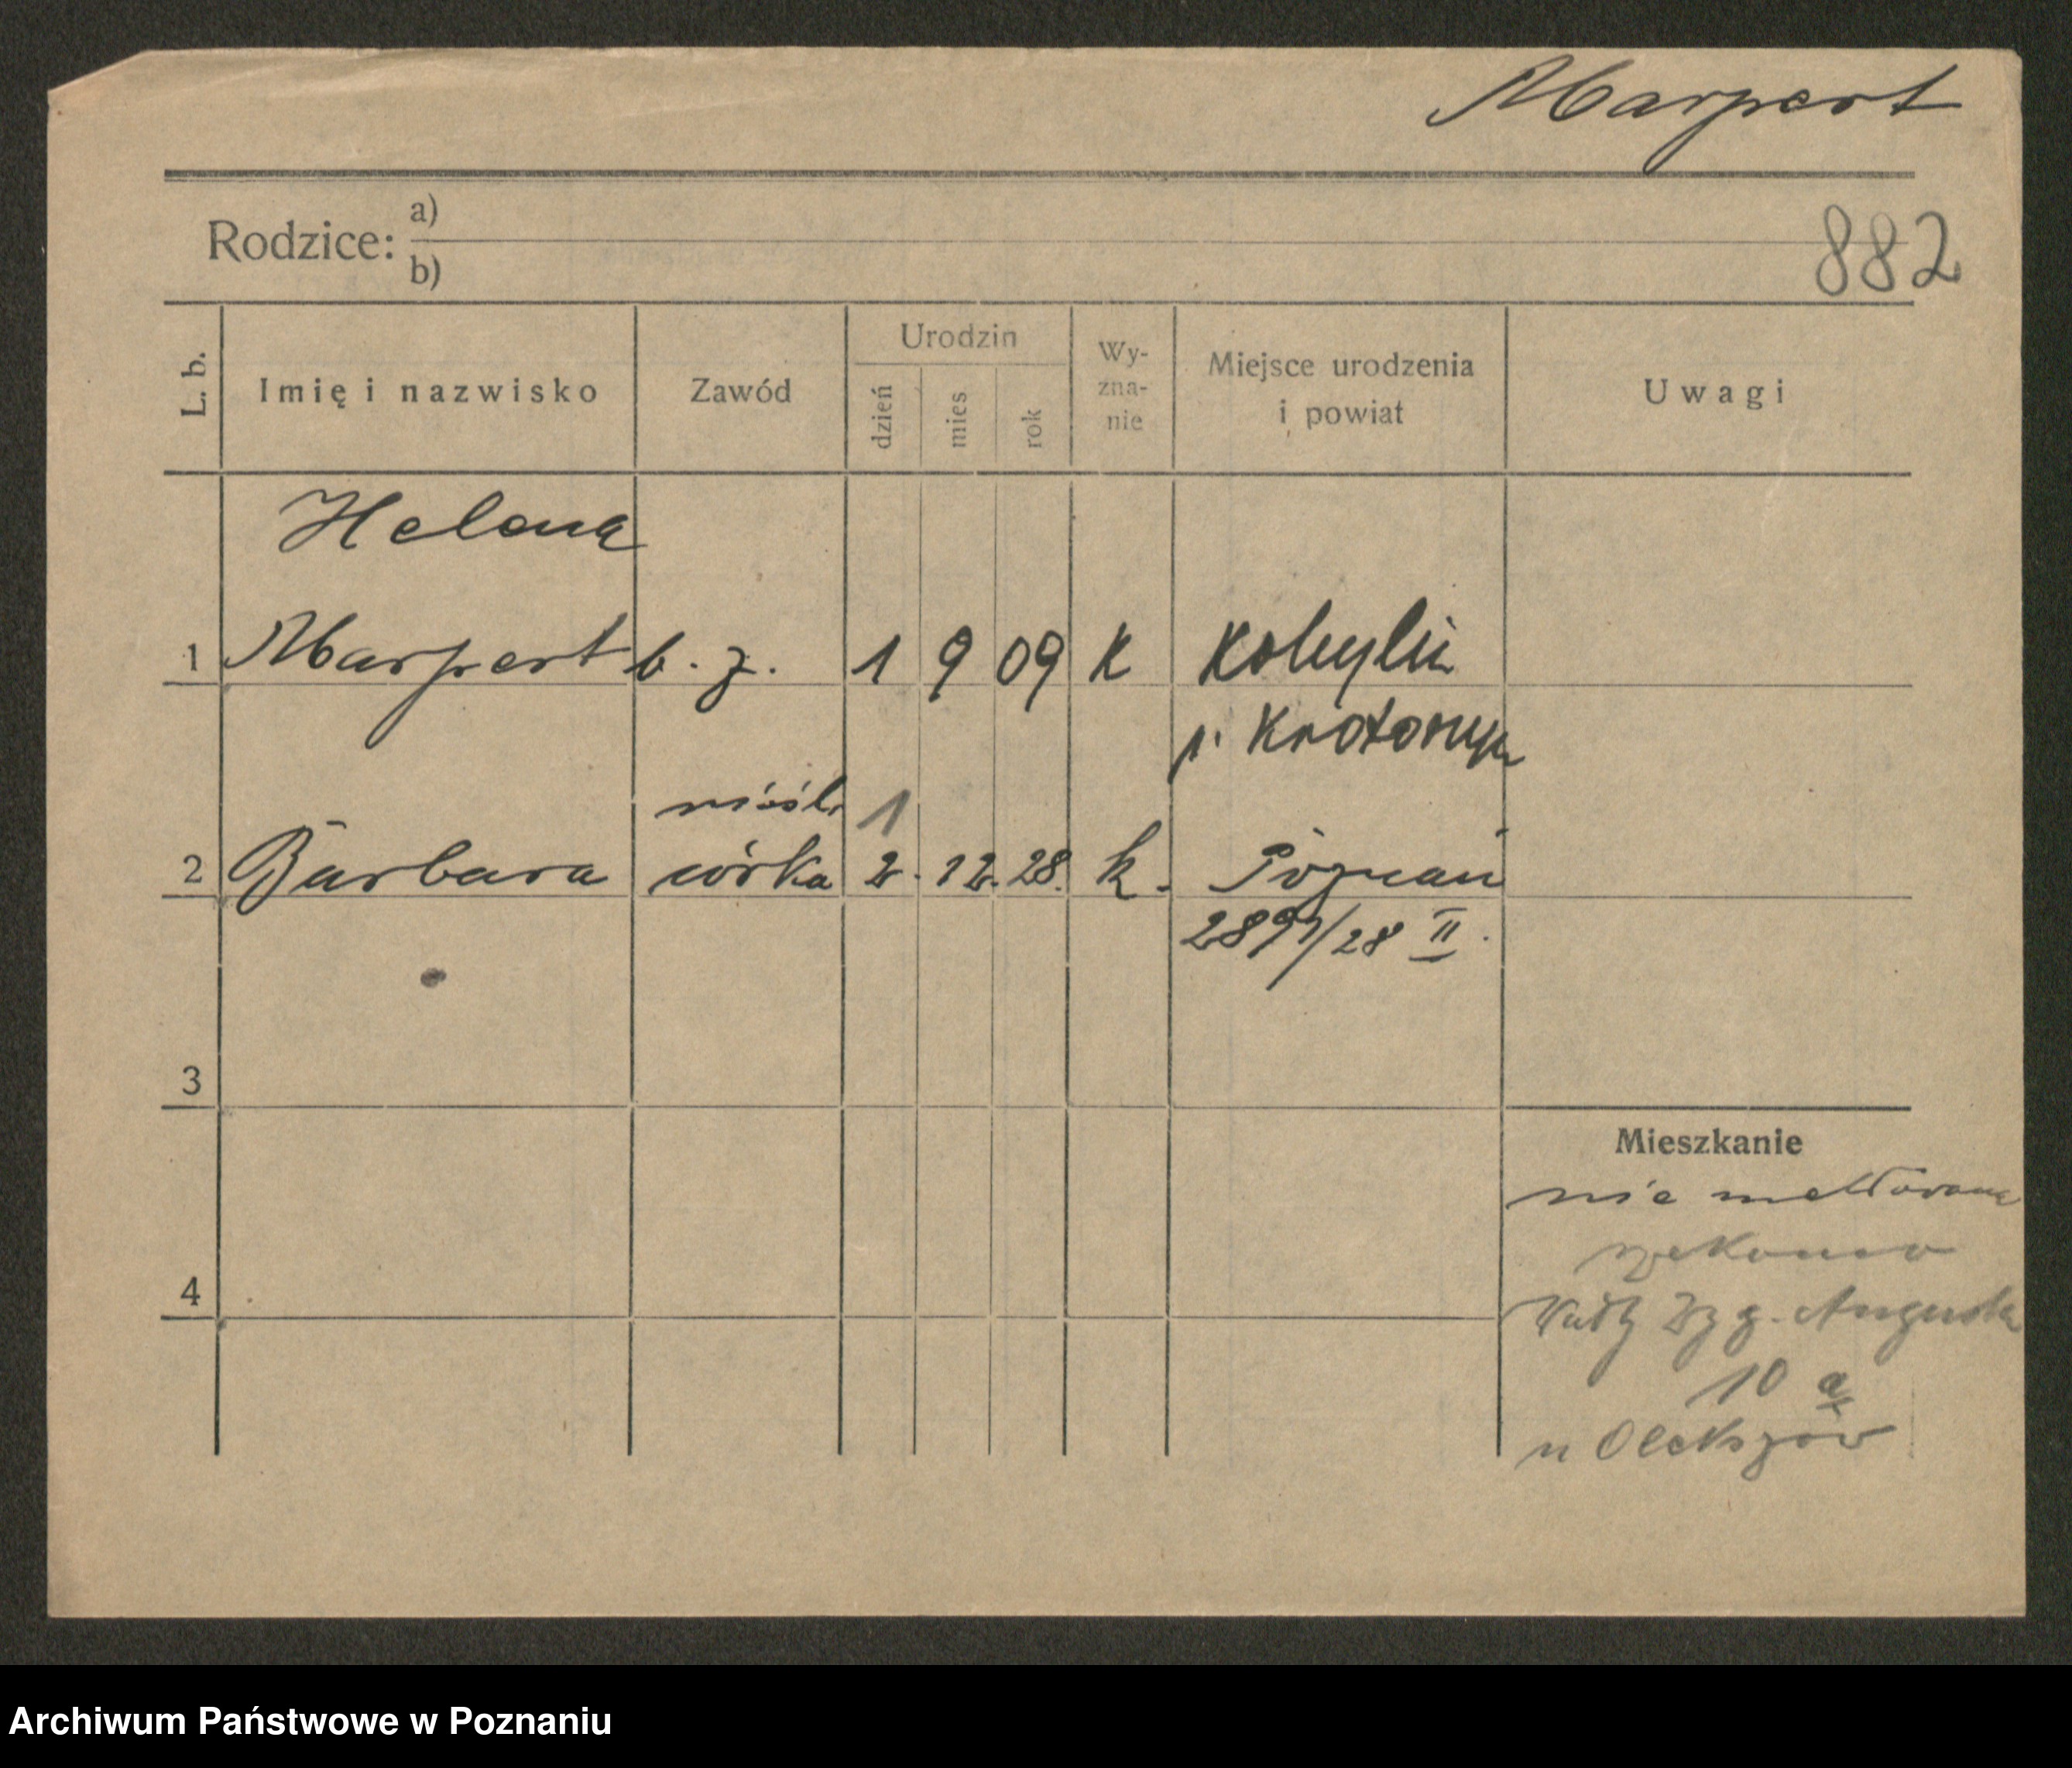 Marpert
Rodzice: a)
b)
882
L. b.
Imię i nazwisko
Zawód
Urodzin
dzień
mies
rok
Wy-
zna-
nie
Miejsce urodzenia
i powiat
Uwagi
Helena
1 Marpert b. z. 1 9 09 K Kobylin
p. Krotoszyn
nieśl. 1
2 Barbara córka 2. 12. 28. k. Poznań
2891/28 II.
3
Mieszkanie
nie meldowana
rzekomo
4
Wały Zyg. Augusta
10 a
u Olekszów
Archiwum Państwowe w Poznaniu